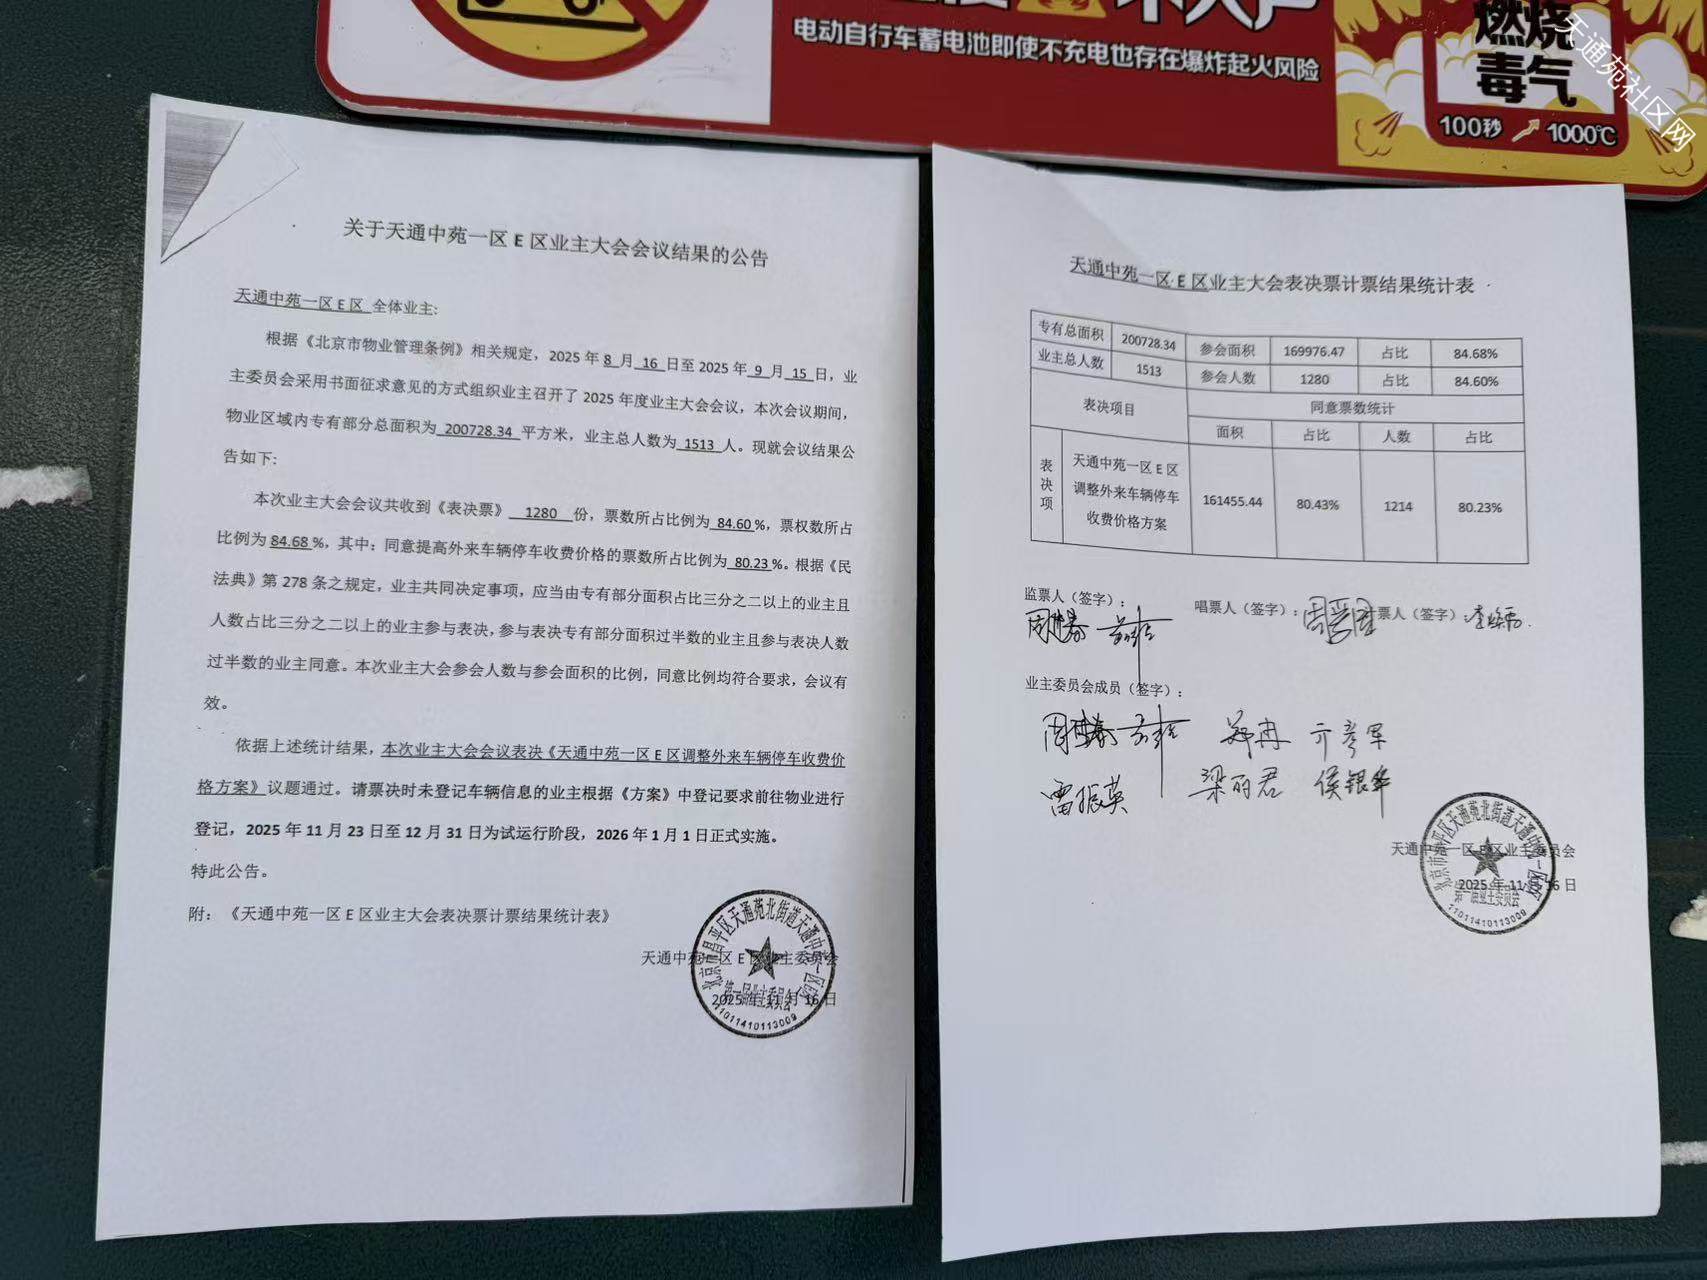 电动自行车蓄电池即使不充电也存在爆炸起火风险
燃烧
毒气
100秒
1000℃
天通苑社区网
关于天通中苑一区 E 区业主大会会议结果的公告
天通中苑一区 E 区 全体业主:
根据《北京市物业管理条例》相关规定，2025 年 8 月 16 日至 2025 年 9 月 15 日，业
主委员会采用书面征求意见的方式组织业主召开了 2025 年度业主大会会议，本次会议期间，
物业区域内专有部分总面积为 200728.34 平方米，业主总人数为 1513 人。现就会议结果公
告如下:
本次业主大会会议共收到《表决票》 1280 份，票数所占比例为 84.60 %，票权数所占
比例为 84.68 %，其中：同意提高外来车辆停车收费价格的票数所占比例为 80.23 %。根据《民
法典》第 278 条之规定，业主共同决定事项，应当由专有部分面积占比三分之二以上的业主且
人数占比三分之二以上的业主参与表决，参与表决专有部分面积过半数的业主且参与表决人数
过半数的业主同意。本次业主大会参会人数与参会面积的比例，同意比例均符合要求，会议有
效。
依据上述统计结果，本次业主大会会议表决《天通中苑一区 E 区调整外来车辆停车收费价
格方案》议题通过。请票决时未登记车辆信息的业主根据《方案》中登记要求前往物业进行
登记，2025 年 11 月 23 日至 12 月 31 日为试运行阶段，2026 年 1 月 1 日正式实施。
特此公告。
附：《天通中苑一区 E 区业主大会表决票计票结果统计表》
天通中苑一区 E 区业主委员会
2025 年 11 月 16 日
11011410113009
天通中苑一区 E 区业主大会表决票计票结果统计表
专有总面积 200728.34 参会面积 169976.47 占比 84.68%
业主总人数 1513 参会人数 1280 占比 84.60%
表决项目 同意票数统计
面积 占比 人数 占比
表决项 天通中苑一区 E 区
调整外来车辆停车 161455.44 80.43% 1214 80.23%
收费价格方案
监票人（签字）：
唱票人（签字）：
票人（签字）：
业主委员会成员（签字）：
梁丽君 侯银华
雷振英
天通中苑一区 E 区业主委员会
2025 年 11 月 16 日
11011410113009